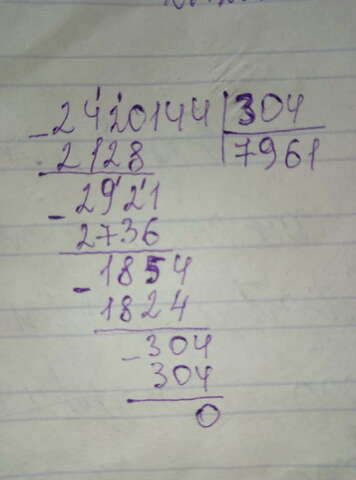 2420144 304
2128 7961
2921
2736
1854
1824
304
304
0